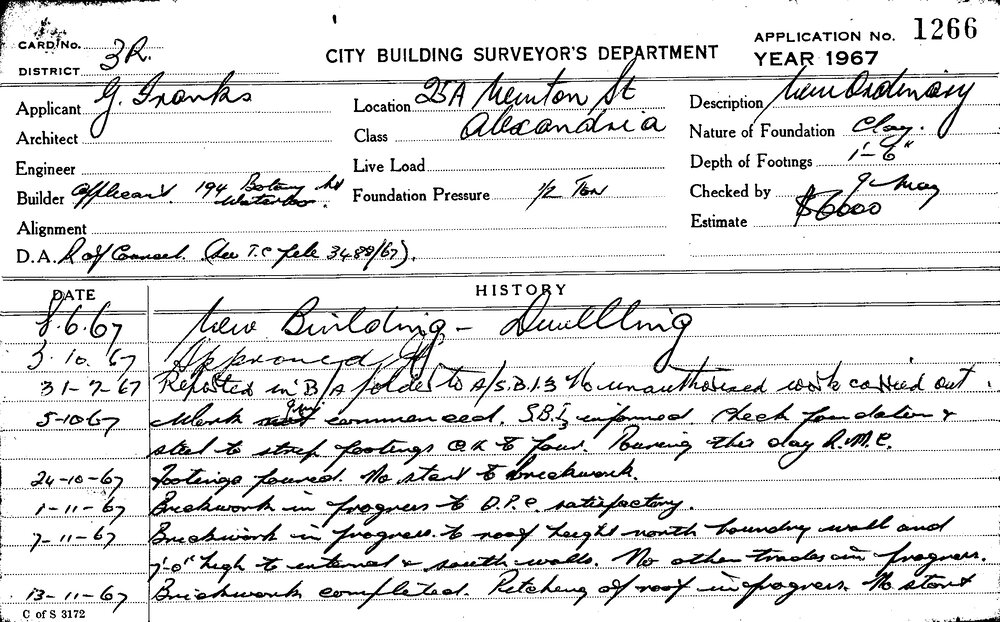 CARD No. 3R.
DISTRICT
CITY BUILDING SURVEYOR'S DEPARTMENT
APPLICATION No. 1266
YEAR 1967
Applicant G. Franks
Architect
Engineer
Builder Applicant. 194 Botany Rd
Waterloo.
Alignment
D.A. R of Council. (See T.C file 3488/67).
Location 25A Newton St
Alexandria
Class
Live Load
Foundation Pressure 1/2 Ton
Description New Ordinary
Nature of Foundation Clay.
Depth of Footings 1'-6"
Checked by 9-May
Estimate $6000
DATE HISTORY
8.6.67 New Building - Dwelling
3.10.67 Approved
31-7-67 Reported in B/A folder to A/S.B.I.3 No unauthorised work carried out.
5-10-67 Work just commenced. S.B.I. informed Check foundation &
steel to strip footings OK to pour. Pouring this day R.M.C.
24-10-67 Footings poured. No start to brickwork.
1-11-67 Brickwork in progress to D.P.C. satisfactory.
7-11-67 Brickwork in progress to roof height north boundry wall and
7'-0" high to internal & south walls. No other trades in progress.
13-11-67 Brickwork completed. Pitching of roof in progress. No start
C of S 3172